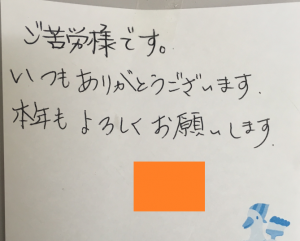 ご苦労様です。
いつもありがとうございます.
本年もよろしくお願いします.